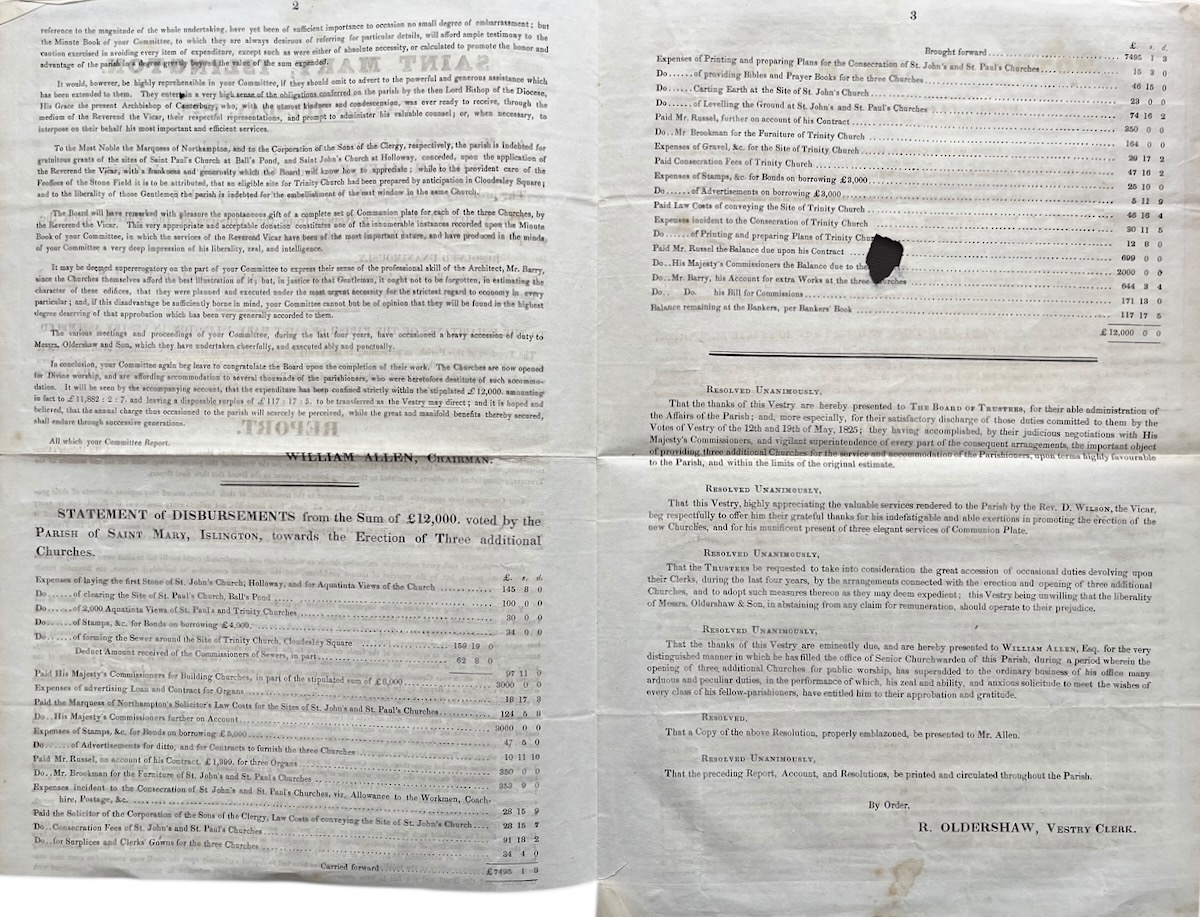 2
reference to the magnitude of the whole undertaking, have yet been of sufficient importance to occasion no small degree of embarrassment; but
the Minute Book of your Committee, to which they are always desirous of referring for particular details, will afford ample testimony to the
caution exercised in avoiding every item of expenditure, except such as were either of absolute necessity, or calculated to promote the honor and
advantage of the parish in a degree greatly beyond the value of the sum expended.
It would, however, be highly reprehensible in your Committee, if they should omit to advert to the powerful and generous assistance which
has been extended to them. They entertain a very high sense of the obligations conferred on the parish by the then Lord Bishop of the Diocese,
His Grace the present Archbishop of Canterbury, who, with the utmost kindness and condescension, was ever ready to receive, through the
medium of the Reverend the Vicar, their respectful representations, and prompt to administer his valuable counsel; or, when necessary, to
interpose on their behalf his most important and efficient services.
To the Most Noble the Marquess of Northampton, and to the Corporation of the Sons of the Clergy, respectively, the parish is indebted for
gratuitous grants of the sites of Saint Paul's Church at Ball's Pond, and Saint John's Church at Holloway, conceded, upon the application of
the Reverend the Vicar, with a frankness and generosity which the Board will know how to appreciate; while to the provident care of the
Feoffees of the Stone Field it is to be attributed, that an eligible site for Trinity Church had been prepared by anticipation in Cloudesley Square;
and to the liberality of those Gentlemen the parish is indebted for the embellishment of the east window in the same Church.
The Board will have remarked with pleasure the spontaneous gift of a complete set of Communion plate for each of the three Churches, by
the Reverend the Vicar. This very appropriate and acceptable donation constitutes one of the innumerable instances recorded upon the Minute
Book of your Committee, in which the services of the Reverend Vicar have been of the most important nature, and have produced in the minds
of your Committee a very deep impression of his liberality, zeal, and intelligence.
It may be deemed supererogatory on the part of your Committee to express their sense of the professional skill of the Architect, Mr. Barry,
since the Churches themselves afford the best illustration of it; but, in justice to that Gentleman, it ought not to be forgotten, in estimating the
character of these edifices, that they were planned and executed under the most urgent necessity for the strictest regard to economy in every
particular; and, if this disadvantage be sufficiently borne in mind, your Committee cannot but be of opinion that they will be found in the highest
degree deserving of that approbation which has been very generally accorded to them.
The various meetings and proceedings of your Committee, during the last four years, have occasioned a heavy accession of duty to
Messrs. Oldershaw and Son, which they have undertaken cheerfully, and executed ably and punctually.
In conclusion, your Committee again beg leave to congratulate the Board upon the completion of their work. The Churches are now opened
for Divine worship, and are affording accommodation to several thousands of the parishioners, who were heretofore destitute of such accommo-
dation. It will be seen by the accompanying account, that the expenditure has been confined strictly within the stipulated £12,000. amounting
in fact to £11,882 : 2 : 7. and leaving a disposable surplus of £117 : 17 : 5. to be transferred as the Vestry may direct; and it is hoped and
believed, that the annual charge thus occasioned to the parish will scarcely be perceived, while the great and manifold benefits thereby secured,
shall endure through successive generations.
All which your Committee Report.
WILLIAM ALLEN, Chairman.
STATEMENT of DISBURSEMENTS from the Sum of £12,000. voted by the
Parish of Saint Mary, Islington, towards the Erection of Three additional
Churches.
£. s. d.
Expenses of laying the first Stone of St. John's Church, Holloway, and for Aquatinta Views of the Church ........ 145 8 0
Do......of clearing the Site of St. Paul's Church, Ball's Pond ........ 100 0 0
Do......of 2,000 Aquatinta Views of St. Paul's and Trinity Churches ........ 30 0 0
Do......of Stamps, &c. for Bonds on borrowing £4,000 ........ 34 0 0
Do......of forming the Sewer around the Site of Trinity Church, Cloudesley Square ........ 159 19 0
Deduct Amount received of the Commissioners of Sewers, in part ........ 62 8 0
97 11 0
Paid His Majesty's Commissioners for Building Churches, in part of the stipulated sum of £8,000 ........ 3000 0 0
Expenses of advertising Loan and Contract for Organs ........ 18 17 3
Paid the Marquess of Northampton's Solicitor's Law Costs for the Sites of St. John's and St. Paul's Churches ........ 124 5 8
Do..His Majesty's Commissioners further on Account ........ 3000 0 0
Expenses of Stamps, &c. for Bonds on borrowing £5,000 ........ 47 5 0
Do......of Advertisements for ditto, and for Contracts to furnish the three Churches ........ 10 11 10
Paid Mr. Russel, on account of his Contract, £1,399. for three Organs ........ 350 0 0
Do...Mr. Brookman for the Furniture of St. John's and St. Paul's Churches ........ 353 9 0
Expenses incident to the Consecration of St John's and St. Paul's Churches, viz. Allowance to the Workmen, Coach-
hire, Postage, &c. ........ 28 15 9
Paid the Solicitor of the Corporation of the Sons of the Clergy, Law Costs of conveying the Site of St. John's Church .... 28 15 7
Do..Consecration Fees of St. John's and St. Paul's Churches ........ 91 18 2
Do..for Surplices and Clerks' Gowns for the three Churches ........ 34 4 0
Carried forward ........ £7495 1 3
3
£. s. d.
Brought forward .... 7495 1 3
Expenses of Printing and preparing Plans for the Consecration of St. John's and St. Paul's Churches ........ 15 3 0
Do......of providing Bibles and Prayer Books for the three Churches ........ 46 15 0
Do......Carting Earth at the Site of St. John's Church ........ 23 0 0
Do......of Levelling the Ground at St. John's and St. Paul's Churches ........ 74 16 2
Paid Mr. Russel, further on account of his Contract ........ 350 0 0
Do...Mr Brookman for the Furniture of Trinity Church ........ 164 0 0
Expenses of Gravel, &c. for the Site of Trinity Church ........ 29 17 2
Paid Consecration Fees of Trinity Church ........ 47 16 2
Expenses of Stamps, &c. for Bonds on borrowing £3,000 ........ 25 10 0
Do......of Advertisements on borrowing £3,000 ........ 5 11 9
Paid Law Costs of conveying the Site of Trinity Church ........ 46 16 4
Expenses incident to the Consecration of Trinity Church ........ 30 11 5
Do......of Printing and preparing Plans of Trinity Chu ........ 12 8 0
Paid Mr. Russel the Balance due upon his Contract ........ 699 0 0
Do...His Majesty's Commissioners the Balance due to the ........ 2000 0 0
Do...Mr. Barry, his Account for extra Works at the three Churches ........ 644 3 4
Do.. Do. his Bill for Commissions ........ 171 13 0
Balance remaining at the Bankers, per Bankers' Book ........ 117 17 5
£12,000 0 0
Resolved Unanimously,
That the thanks of this Vestry are hereby presented to The Board of Trustees, for their able administration of
the Affairs of the Parish; and, more especially, for their satisfactory discharge of those duties committed to them by the
Votes of Vestry of the 12th and 19th of May, 1825; they having accomplished, by their judicious negotiations with His
Majesty's Commissioners, and vigilant superintendence of every part of the consequent arrangements, the important object
of providing three additional Churches for the service and accommodation of the Parishioners, upon terms highly favourable
to the Parish, and within the limits of the original estimate.
Resolved Unanimously,
That this Vestry, highly appreciating the valuable services rendered to the Parish by the Rev. D. Wilson, the Vicar,
beg respectfully to offer him their grateful thanks for his indefatigable and able exertions in promoting the erection of the
new Churches, and for his munificent present of three elegant services of Communion Plate.
Resolved Unanimously,
That the Trustees be requested to take into consideration the great accession of occasional duties devolving upon
their Clerks, during the last four years, by the arrangements connected with the erection and opening of three additional
Churches, and to adopt such measures thereon as they may deem expedient; this Vestry being unwilling that the liberality
of Messrs. Oldershaw & Son, in abstaining from any claim for remuneration, should operate to their prejudice.
Resolved Unanimously,
That the thanks of this Vestry are eminently due, and are hereby presented to William Allen, Esq. for the very
distinguished manner in which he has filled the office of Senior Churchwarden of this Parish, during a period wherein the
opening of three additional Churches for public worship, has superadded to the ordinary business of his office many
arduous and peculiar duties, in the performance of which, his zeal and ability, and anxious solicitude to meet the wishes of
every class of his fellow-parishioners, have entitled him to their approbation and gratitude.
Resolved,
That a Copy of the above Resolution, properly emblazoned, be presented to Mr. Allen.
Resolved Unanimously,
That the preceding Report, Account, and Resolutions, be printed and circulated throughout the Parish.
By Order,
R. OLDERSHAW, Vestry Clerk.